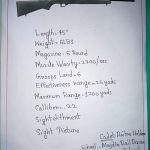 Length = 45"
Weight = 6LBS
Magazine = 5 Round
Muzzle Velocity = 2700/sec
Groops Land = 6
Effectiveness range = 25 yards
Maximum Range = 1700 yards
Calliber = .22
Sight
Sight Picture
Cadet:
School: